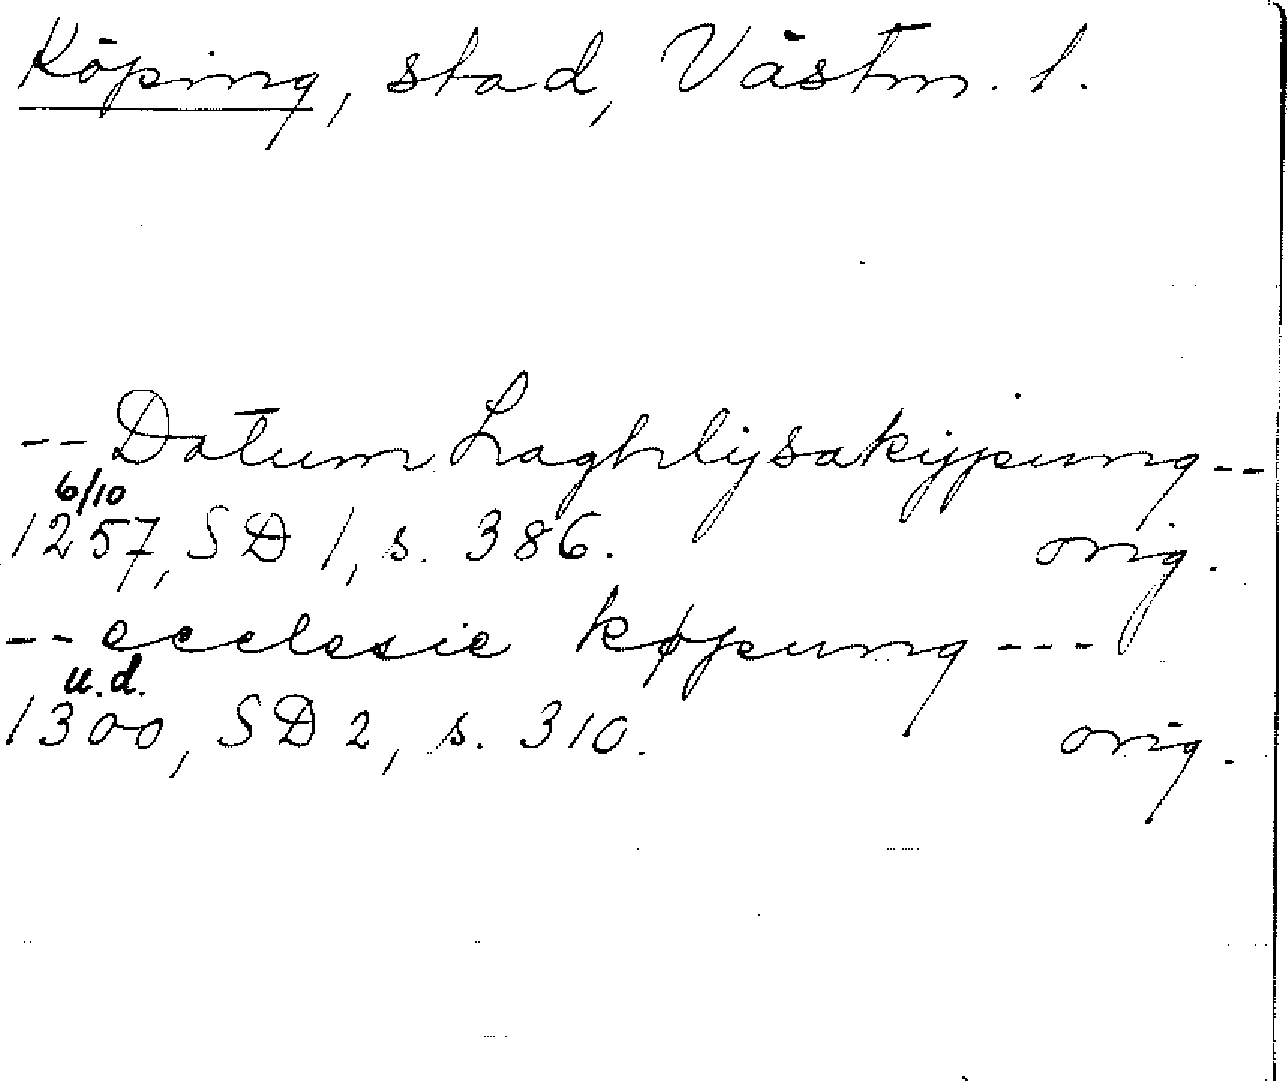 Köping, stad, Västm. l.
-- Datum Laghlijsakijpung --
6/10
1257, SD 1, s. 386. orig.
-- ecclesie køpung ---
u.d.
1300, SD 2, s. 310. orig.